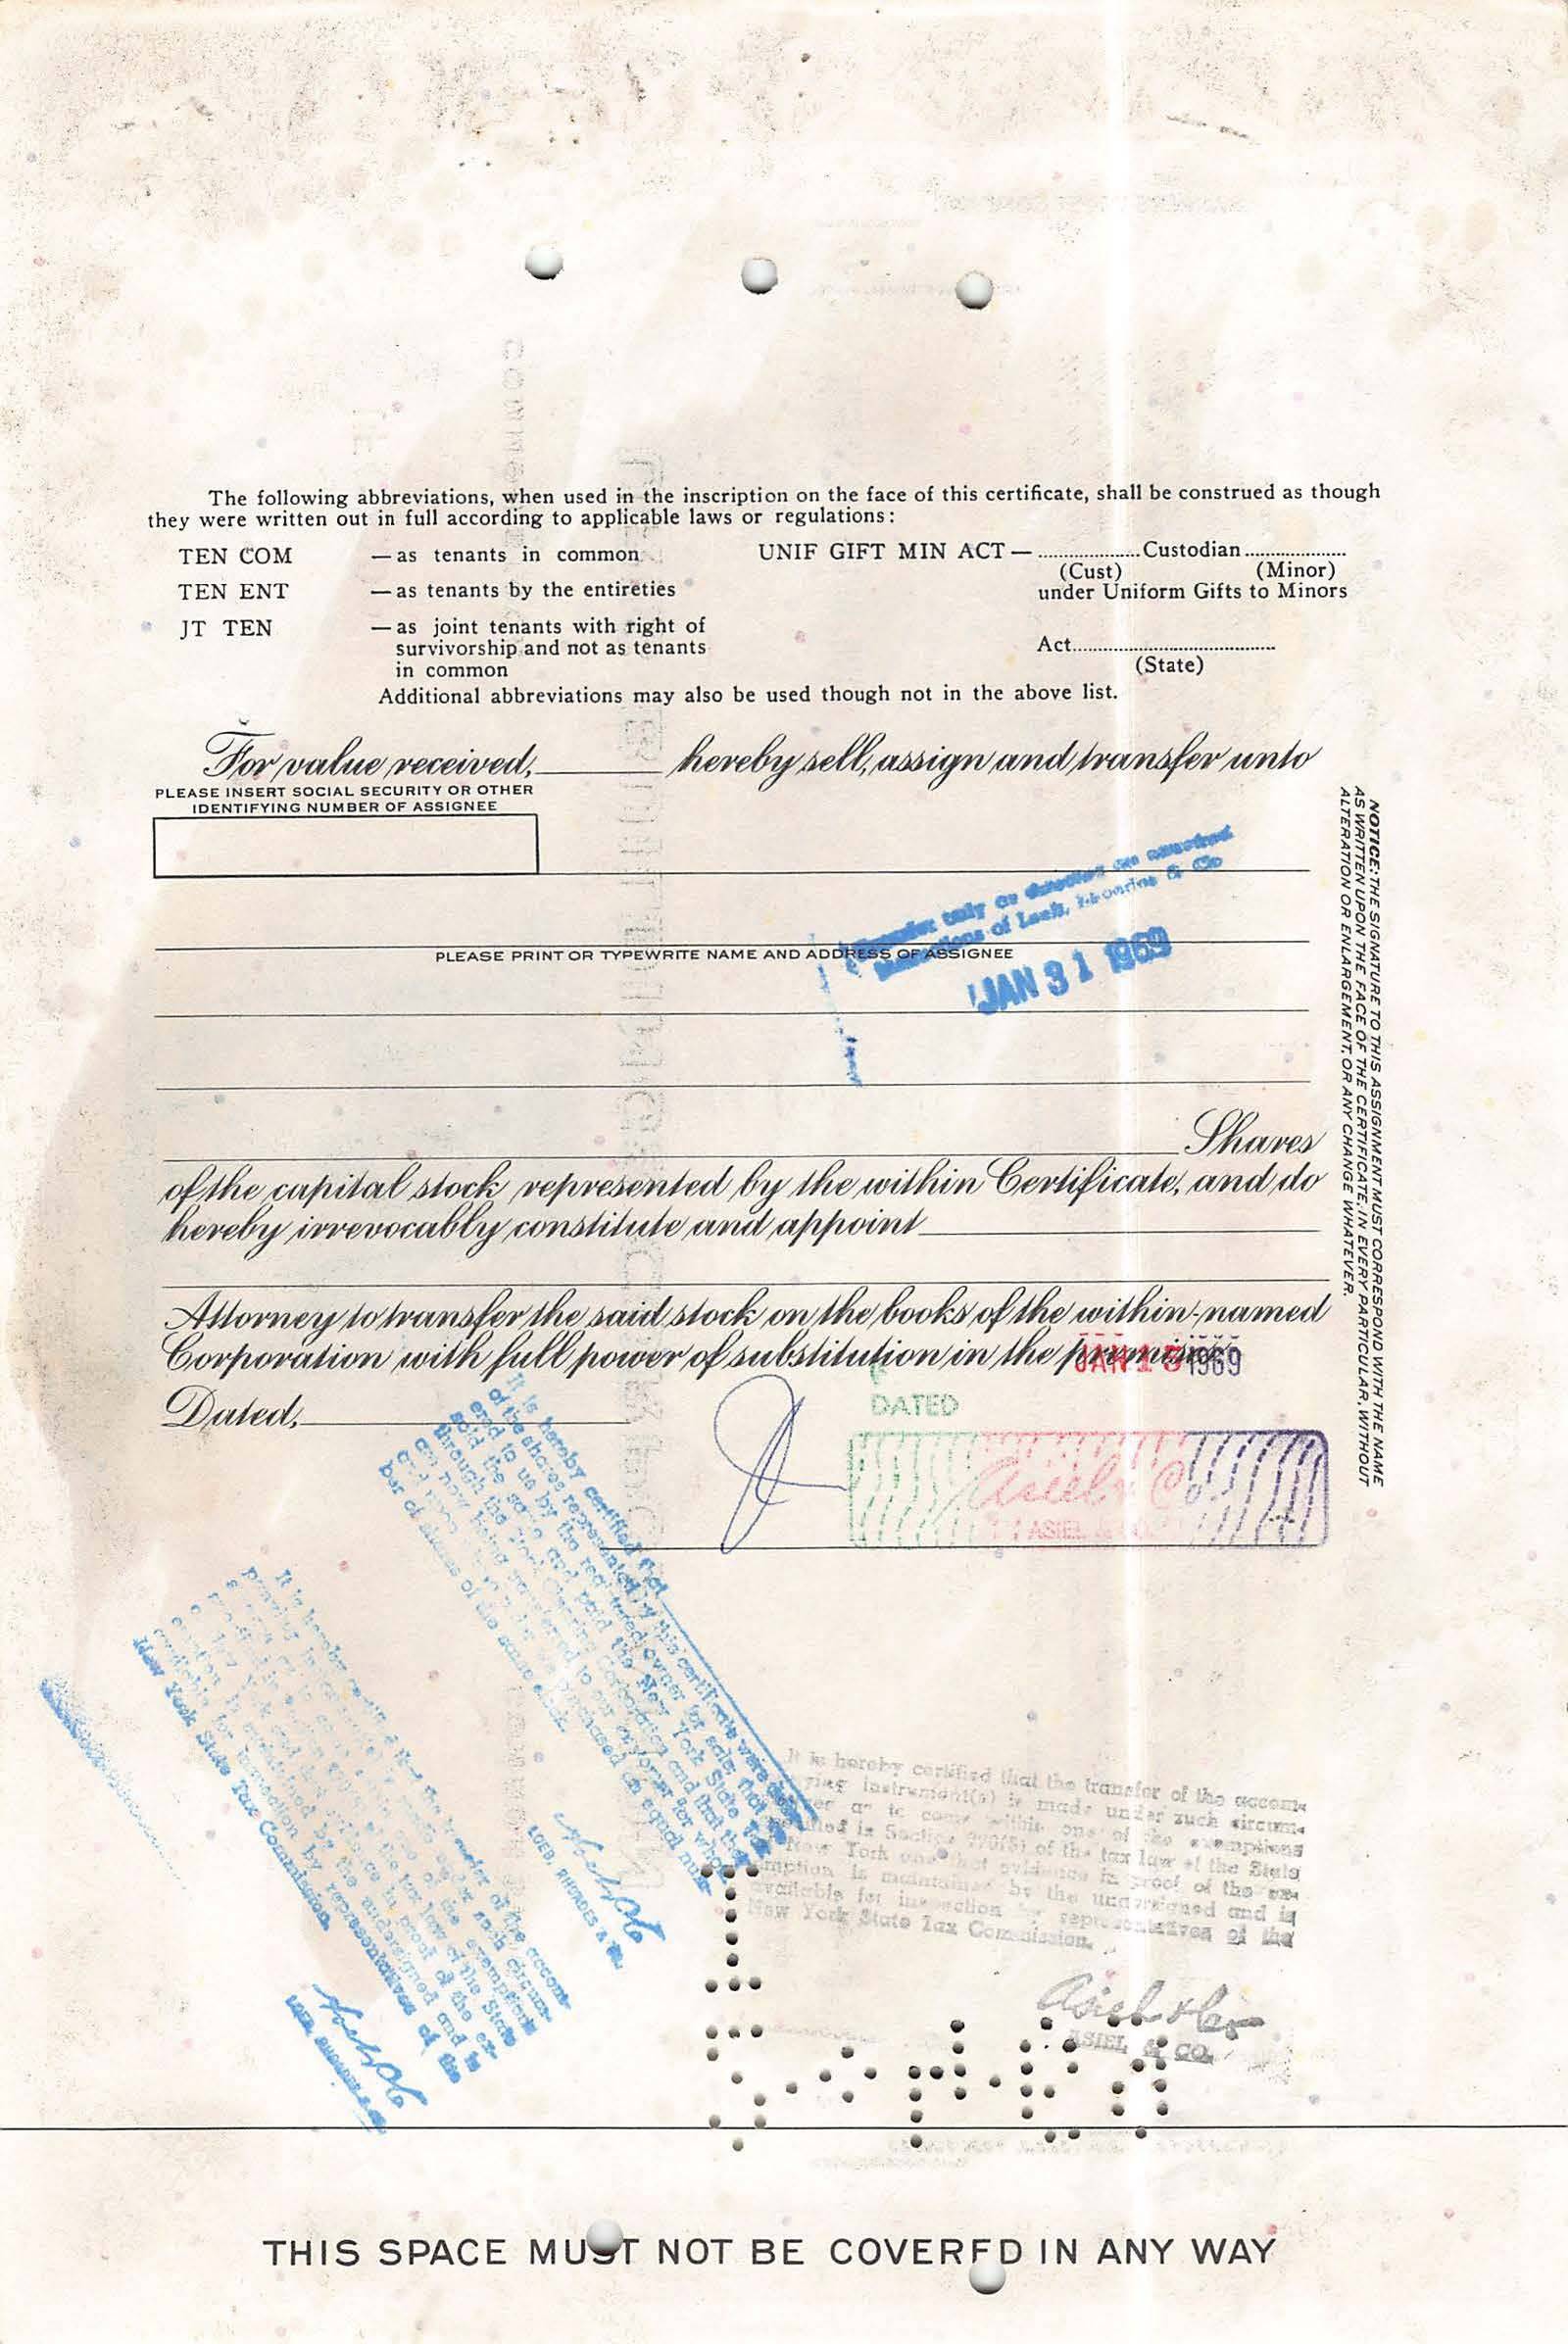 The following abbreviations, when used in the inscription on the face of this certificate, shall be construed as though
they were written out in full according to applicable laws or regulations:
TEN COM — as tenants in common
TEN ENT — as tenants by the entireties
JT TEN — as joint tenants with right of
survivorship and not as tenants
in common
UNIF GIFT MIN ACT — .................... Custodian ....................
(Cust) (Minor)
under Uniform Gifts to Minors
Act........................................
(State)
Additional abbreviations may also be used though not in the above list.
For value received, ________ hereby sell, assign and transfer unto
PLEASE INSERT SOCIAL SECURITY OR OTHER
IDENTIFYING NUMBER OF ASSIGNEE
PLEASE PRINT OR TYPEWRITE NAME AND ADDRESS OF ASSIGNEE
JAN 31 1969
Shares
of the capital stock represented by the within Certificate, and do
hereby irrevocably constitute and appoint
Attorney to transfer the said stock on the books of the within-named
Corporation with full power of substitution in the premises.
JAN 15 1969
Dated,
DATED
Asiel & Co
ASIEL & CO.
NOTICE: THE SIGNATURE TO THIS ASSIGNMENT MUST CORRESPOND WITH THE NAME
AS WRITTEN UPON THE FACE OF THE CERTIFICATE, IN EVERY PARTICULAR, WITHOUT
ALTERATION OR ENLARGEMENT, OR ANY CHANGE WHATEVER.
It is hereby certified that
of the shares represented by this certificate were
to us by the registered owner for sale, that
sold the same and paid the New York State Tax
through the Stock Clearing Corporation and that the
are now being transferred to our customer for whom
purchased an equal num-
ber of shares of the same stock.
LOEB, RHOADES & CO.
New York State Tax Commission.
LOEB, RHOADES & CO.
It is hereby certified that the transfer of the accom-
instrument(s) is made under such circum-
as to come within one of the exemptions
in Section 270(5) of the tax law of the State
New York and that evidence in proof of the ex-
emption is maintained by the undersigned and is
available for inspection by representatives of the
New York State Tax Commission.
Asiel & Co
ASIEL & CO.
THIS SPACE MUST NOT BE COVERED IN ANY WAY